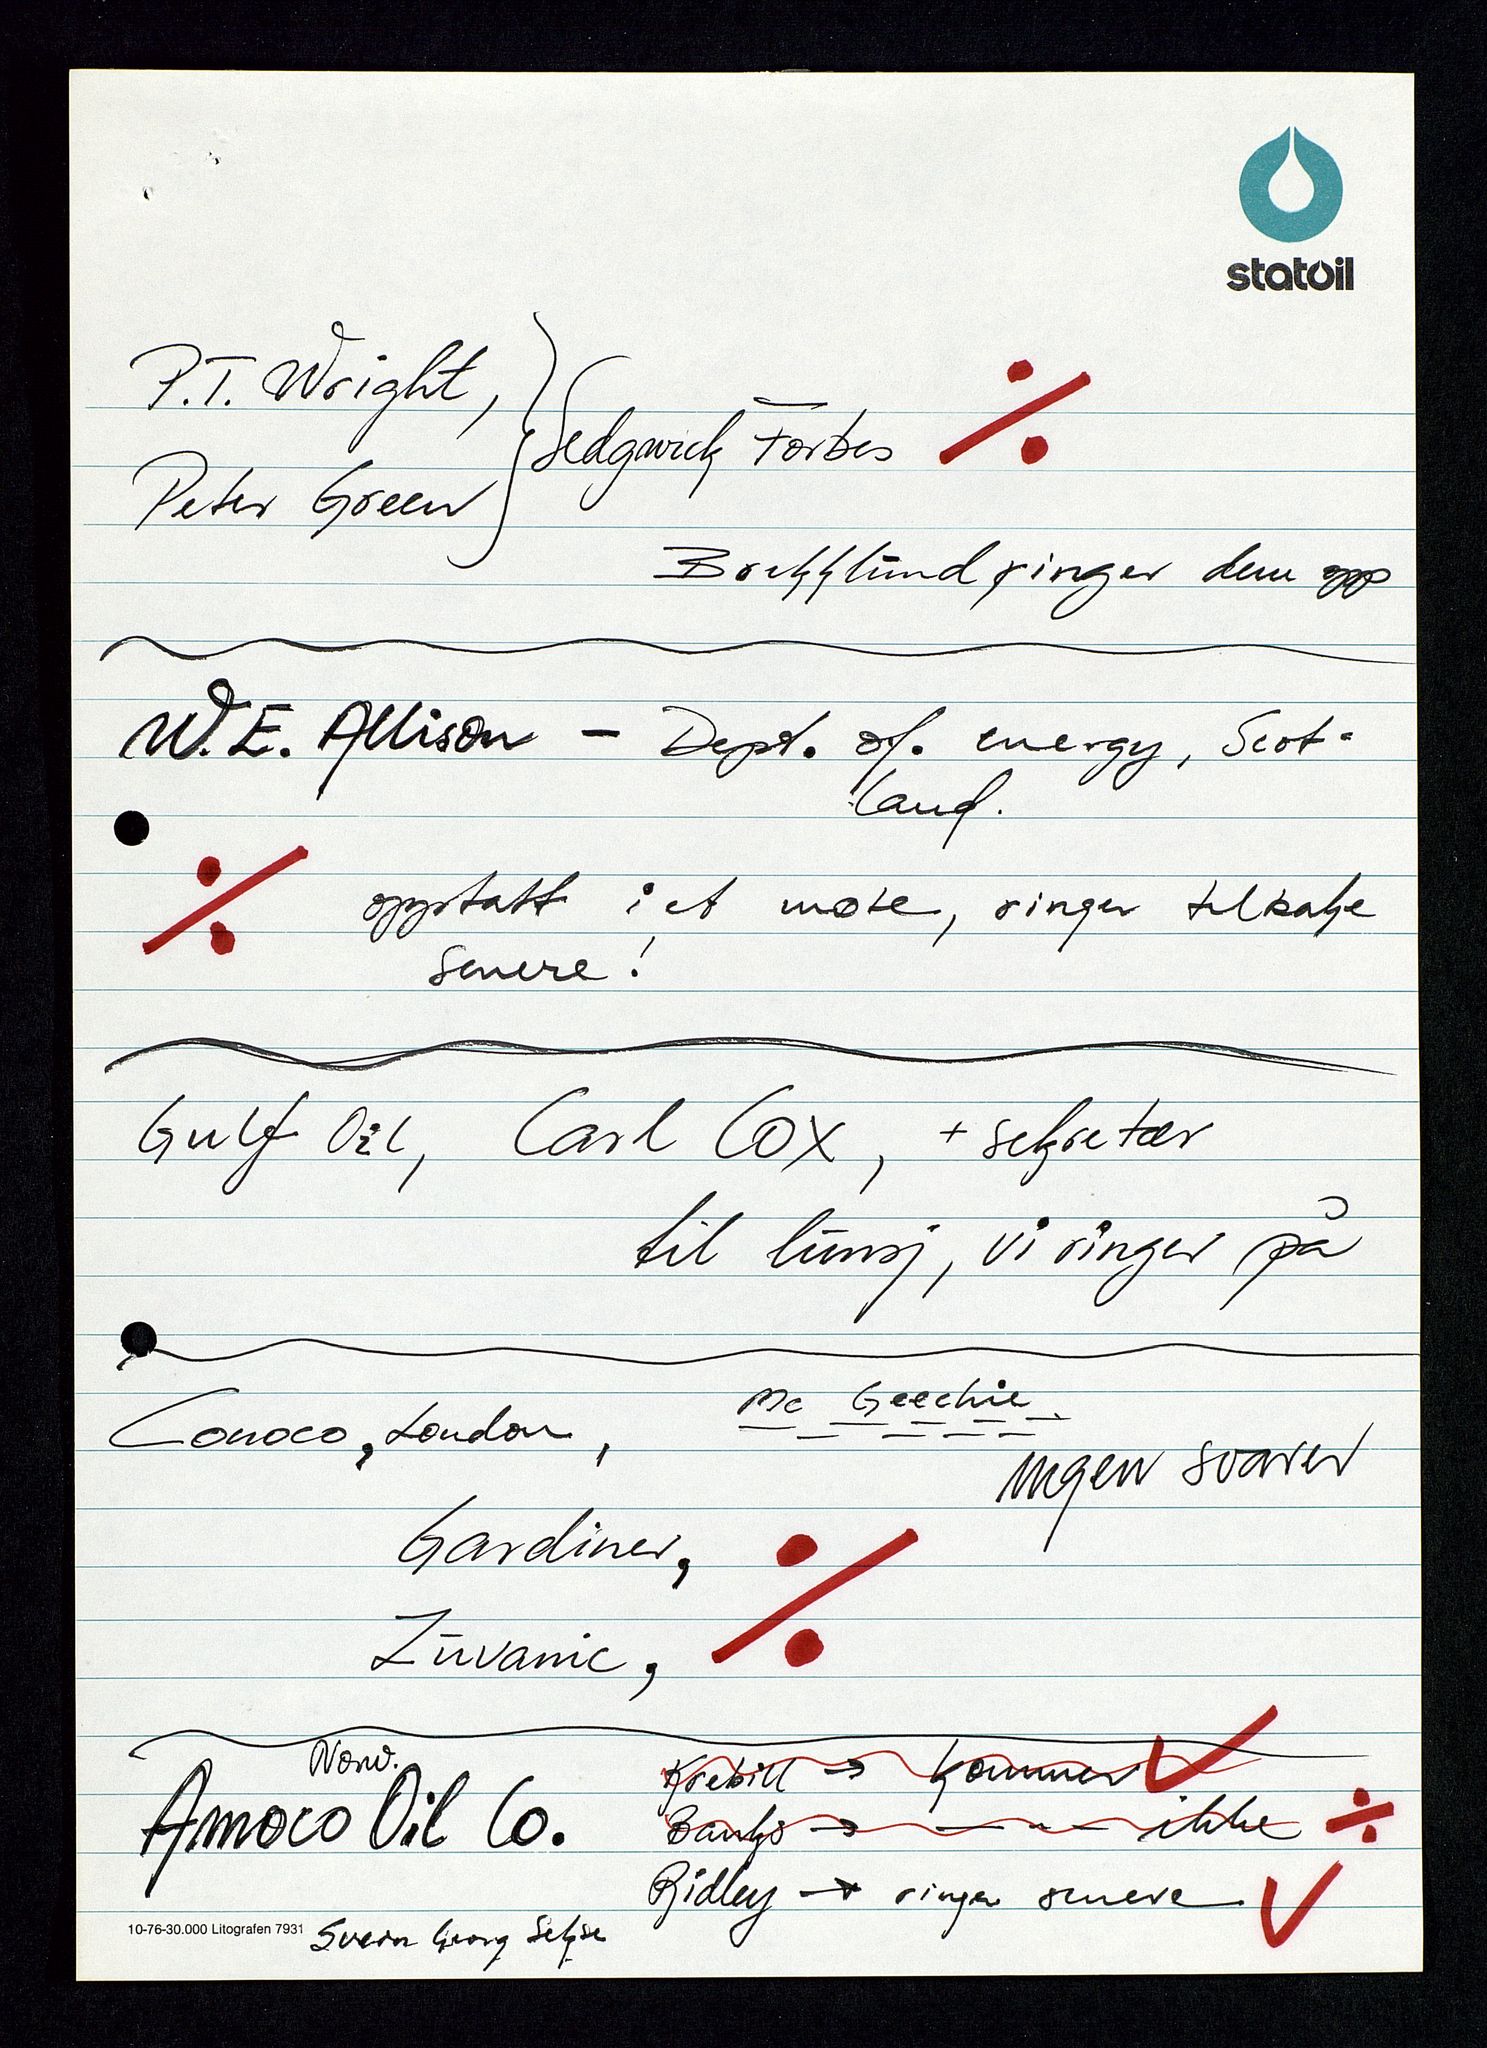 statoil
P.T. Wright,
Sedgwick Forbes ÷
Peter Green
Brekklund ringer dem opp
W.E. Allison — Dept. of. energy, Scot-
land.
÷ opptatt i et møte, ringer tilbake
senere!
Gulf Oil, Carl Cox, + sekretær
til lunsj, vi ringer på
Conoco, London, Mc Geechie
ingen svarer
Gardiner,
÷
Zuvanic,
Norw.
Amoco Oil Co.
Krebill → kommer ✓
Banks → — " — ikke ÷
Ridley → ringer senere ✓
10-76-30.000 Litografen 7931
Svein Georg